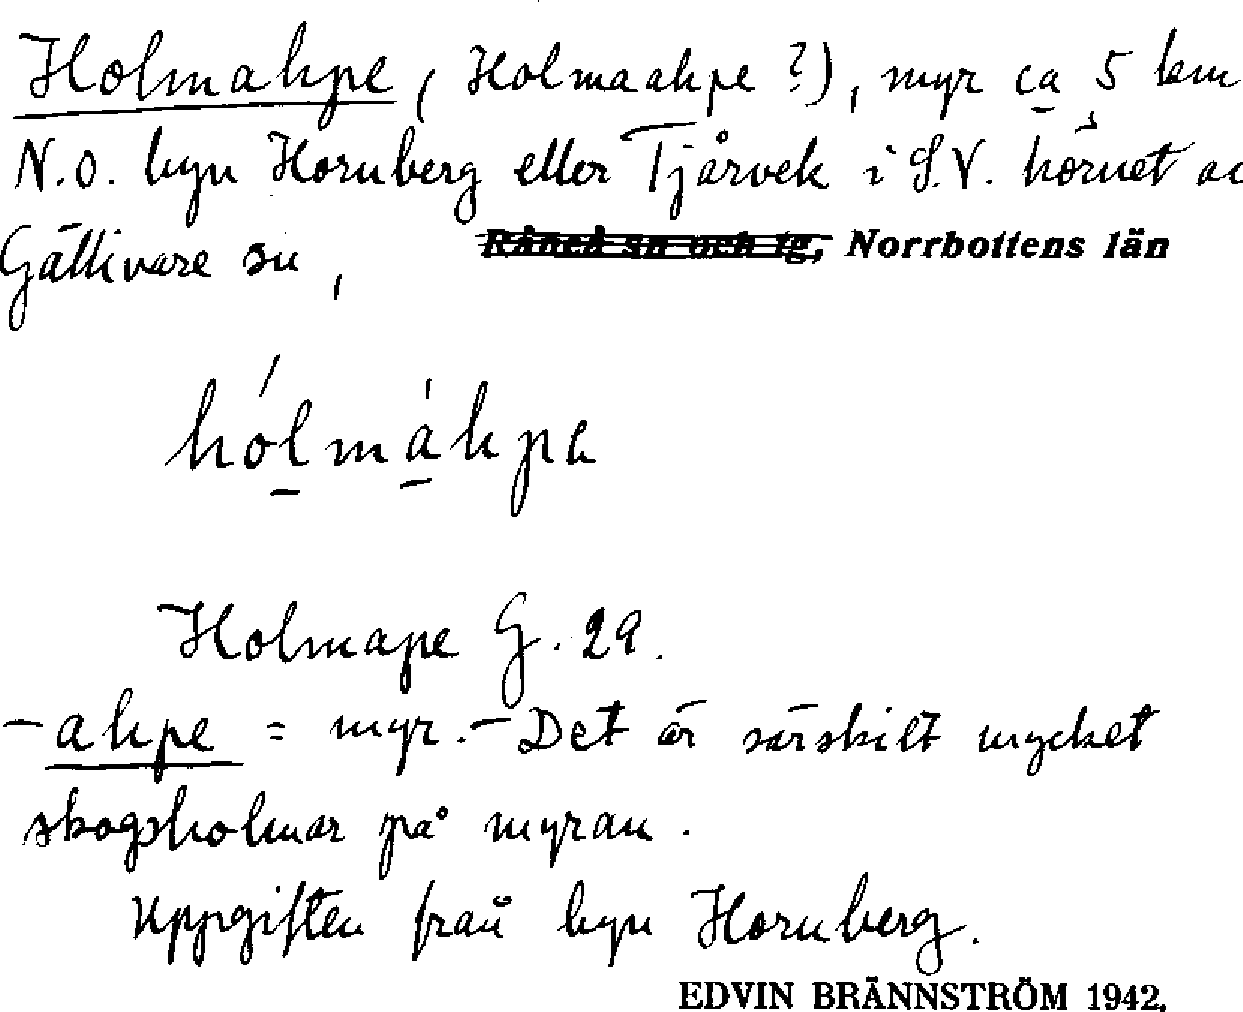 Holmahpe ( Holmaahpe ?), myr ca 5 km
N.O. byn Hornberg eller Tjårvek i S.V. hörnet av
Gällivare sn, Råneå sn och tg, Norrbottens län
hólmáhpa
Holmape G. 29.
-ahpe = myr. - Det är särskilt mycket
skogsholmar på myran.
Uppgiften från byn Hornberg.
EDVIN BRÄNNSTRÖM 1942.